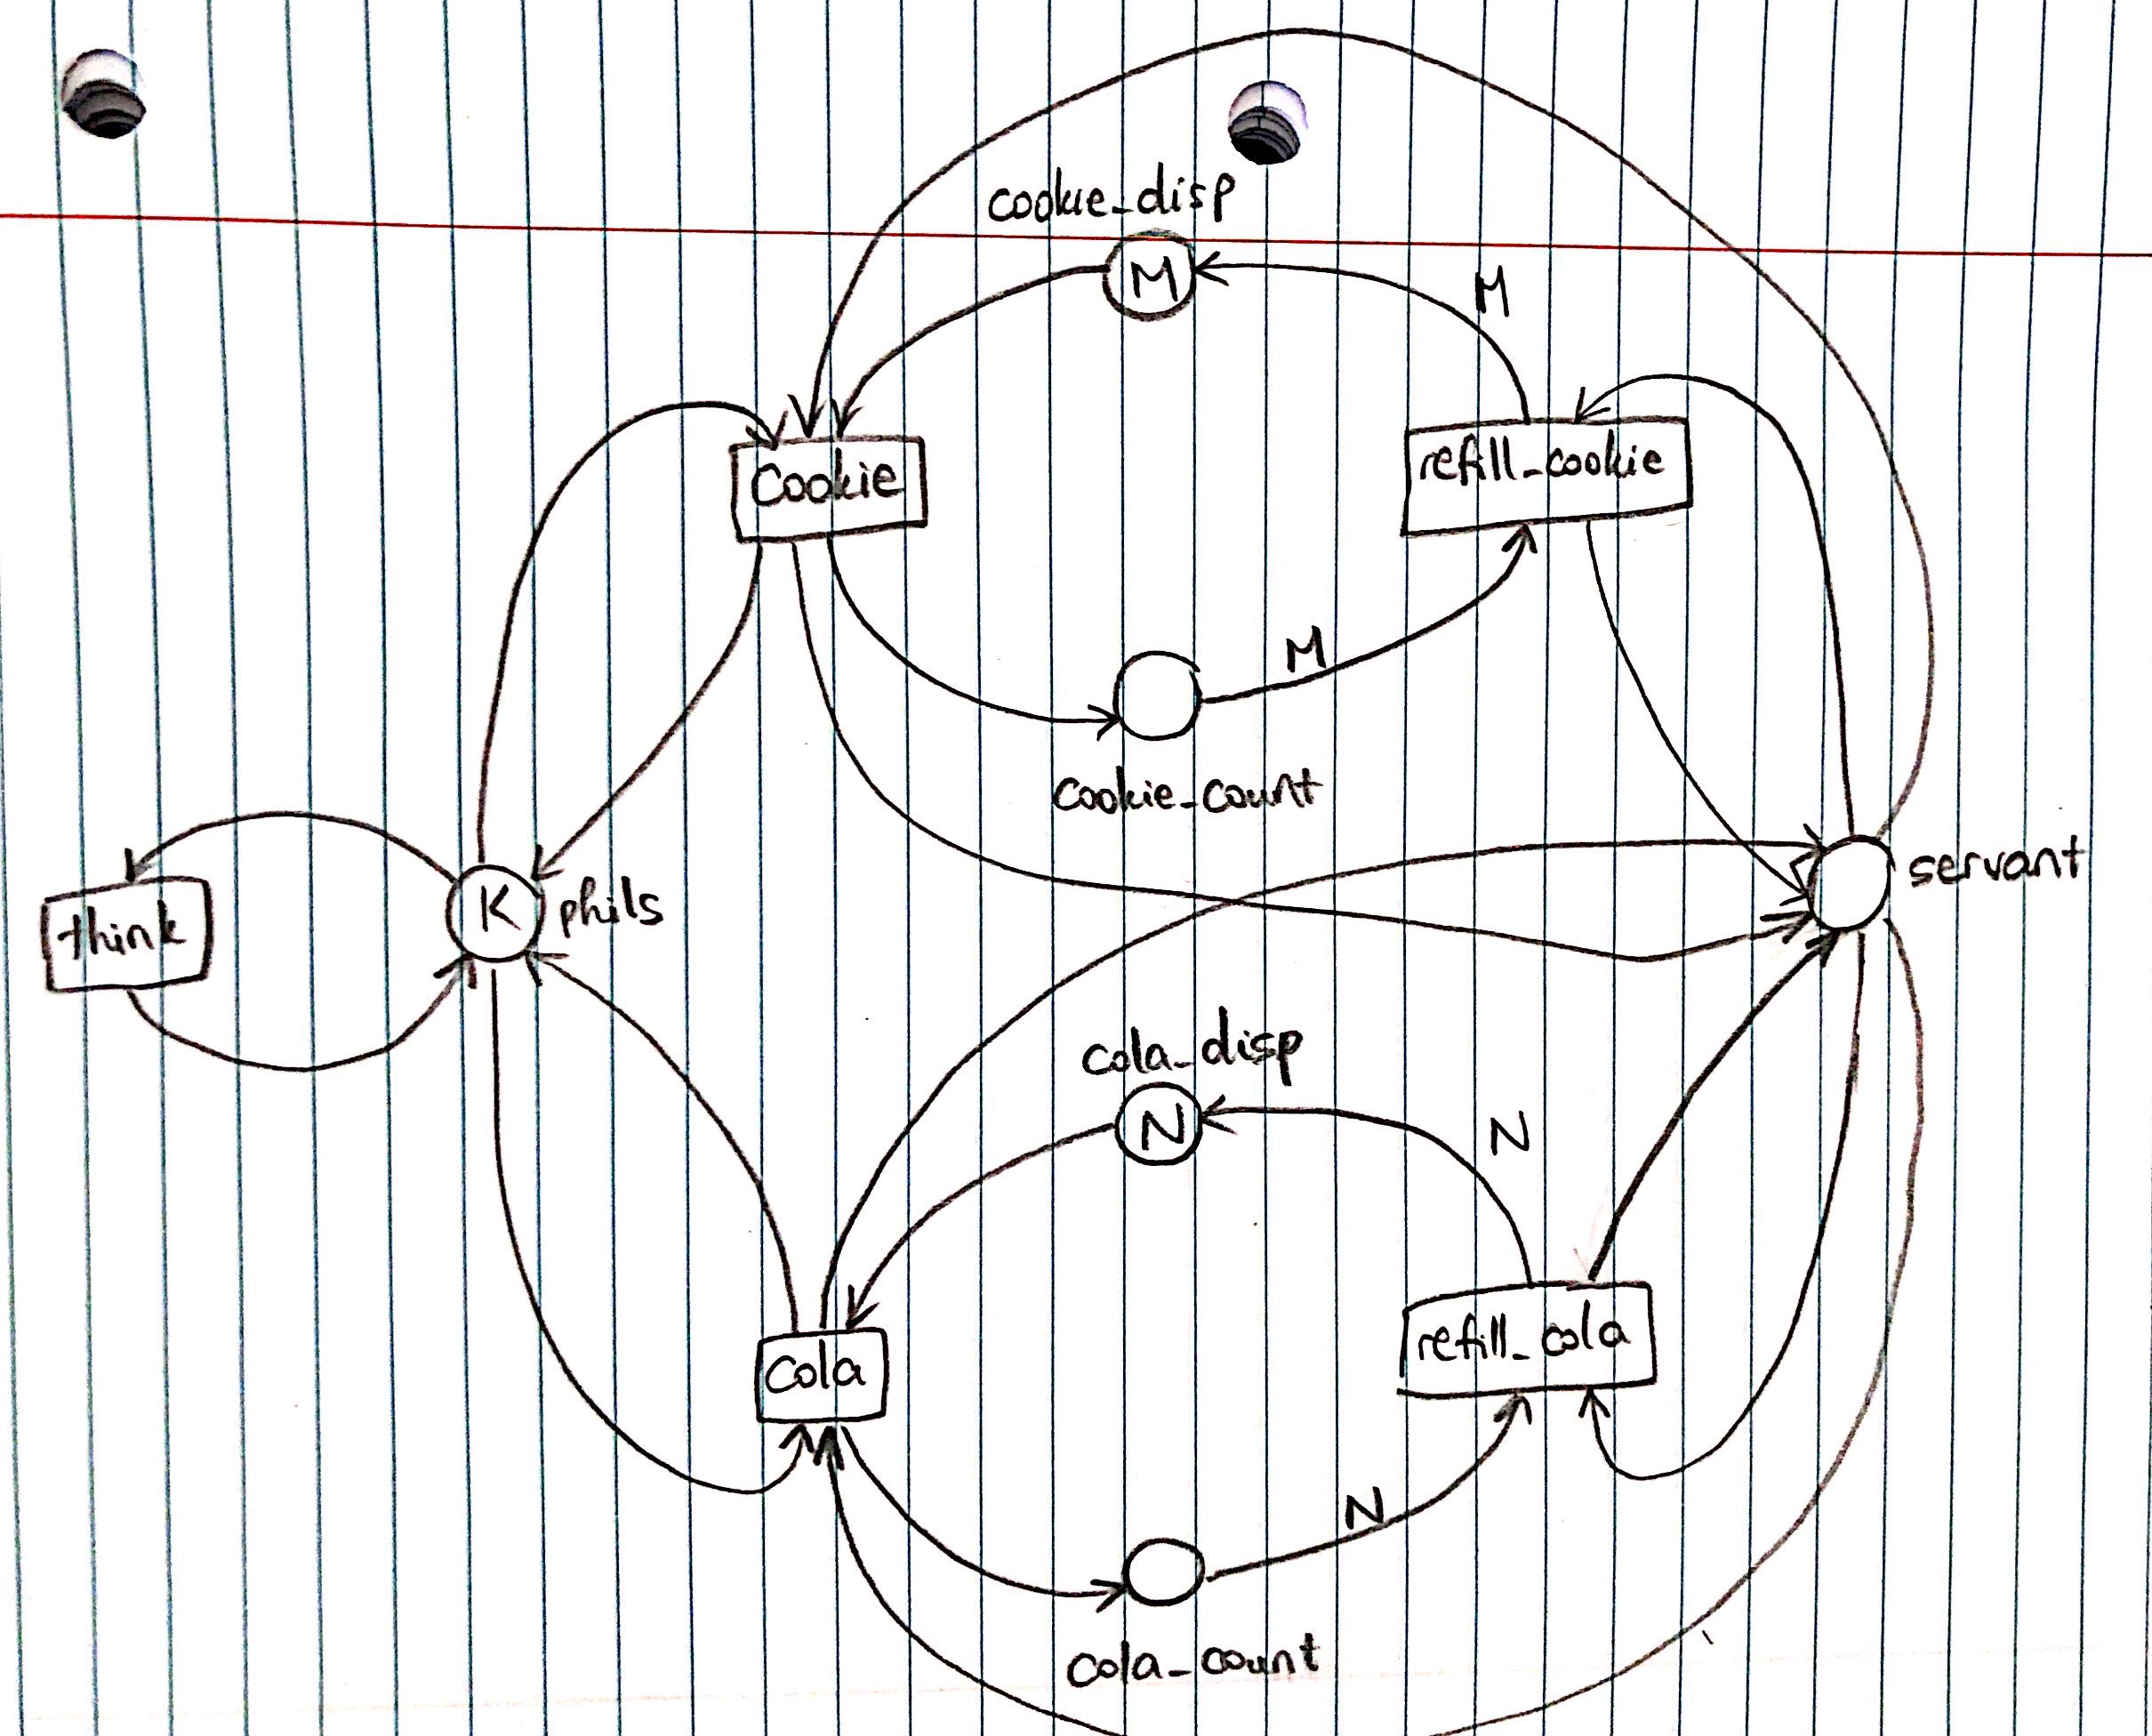 cookie_disp
M
M
Cookie
refill_cookie
M
cookie_count
think
K
phils
servant
cola_disp
N
N
cola
refill_cola
N
cola_count